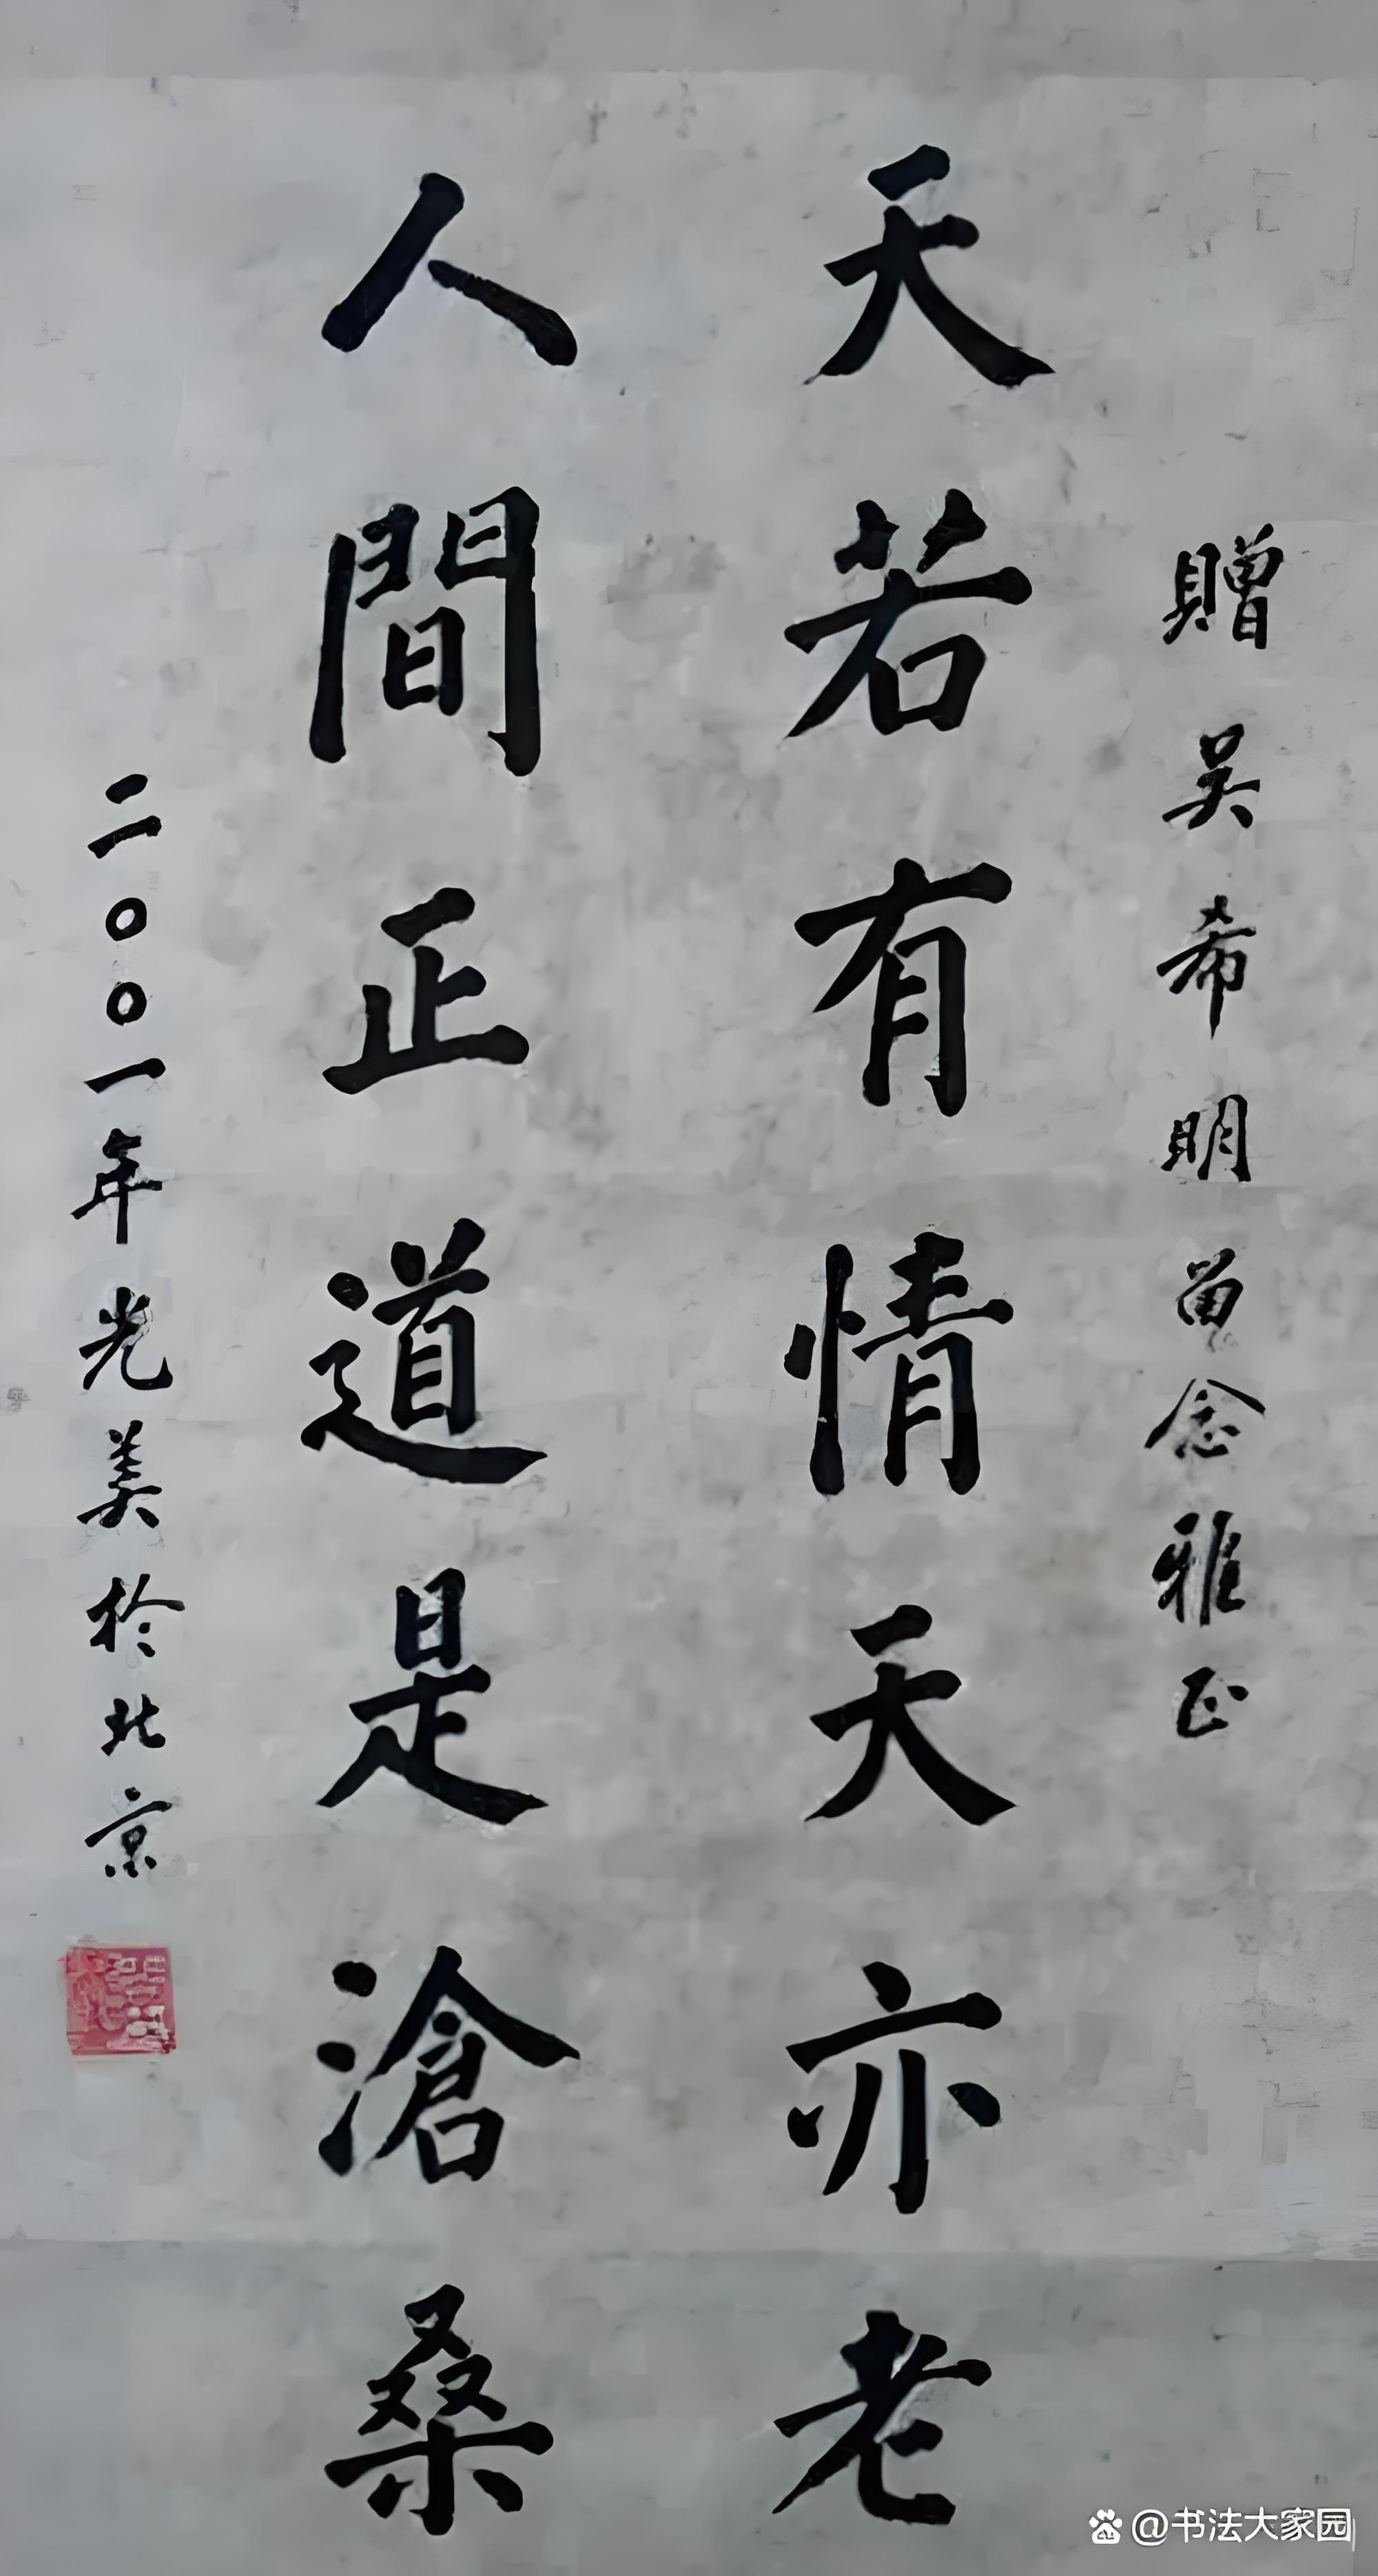 贈吴希明留念雅正
天若有情天亦老
人間正道是滄桑
二〇〇一年光美於北京
@书法大家园